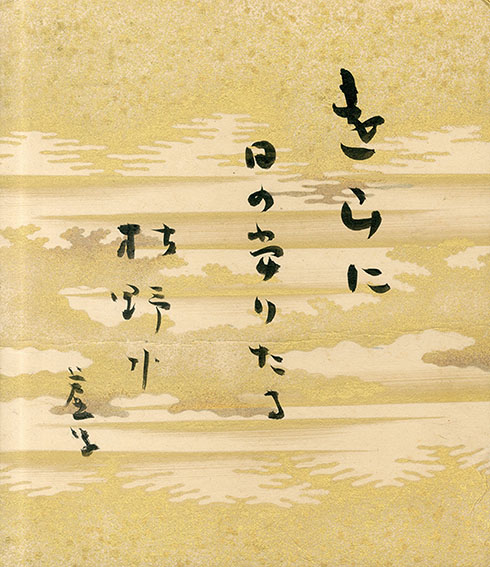 遠山に
日の当りたる
枯野かな
虚子